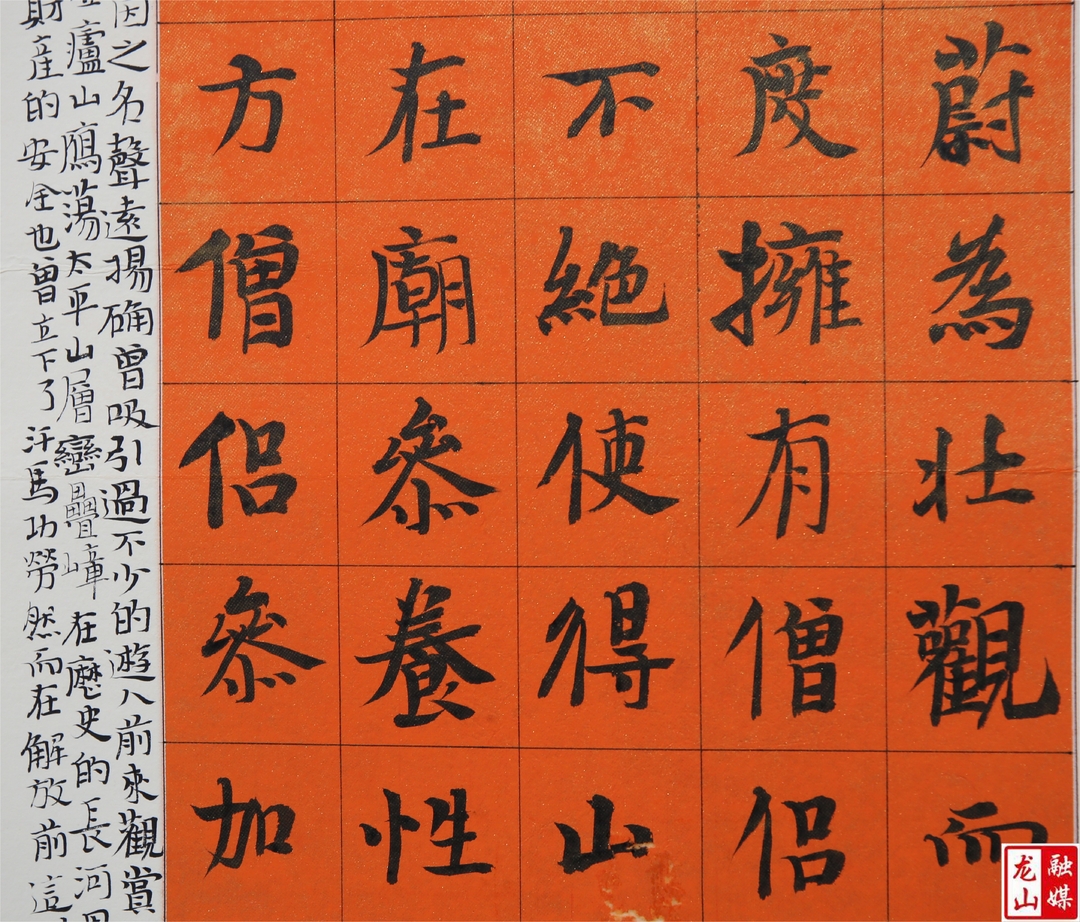 蔚為壯觀而
度擁有僧侶
不絕使得山
在廟參養性
方僧侶參加
因之名聲遠揚确曾吸引過不少的遊人前來觀賞
廬山鴈蕩太平山層巒疊嶂在歷史的長河
財產的安全也曾立下了汗馬功勞然而在解放前這
龙山
融媒